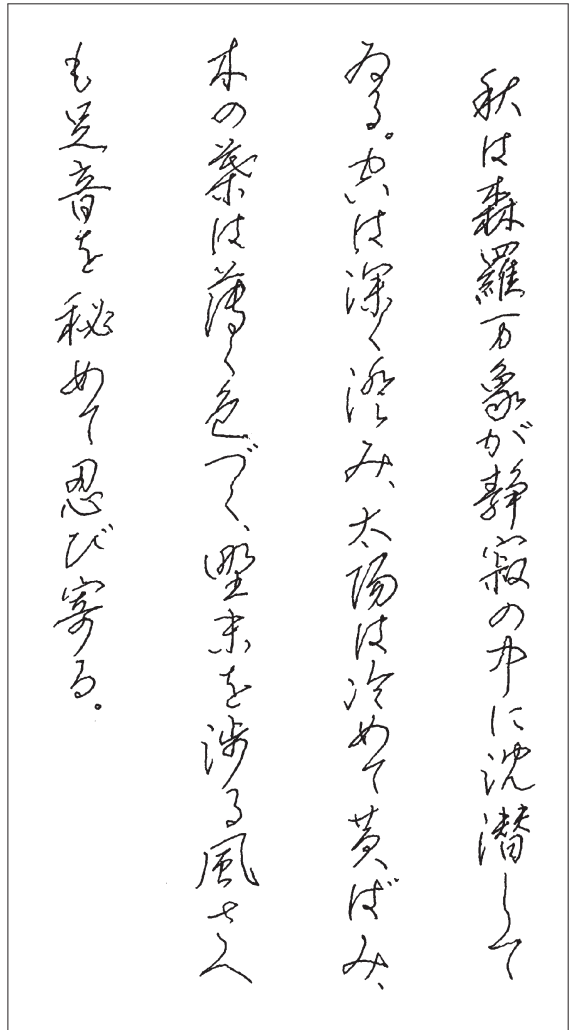 秋は森羅万象が静寂の中に沈潜して
ゐる。空は深く澄み、太陽は冷めて黄ばみ、
木の葉は薄く色づく、野末を渉る風さへ
も足音を秘めて忍び寄る。